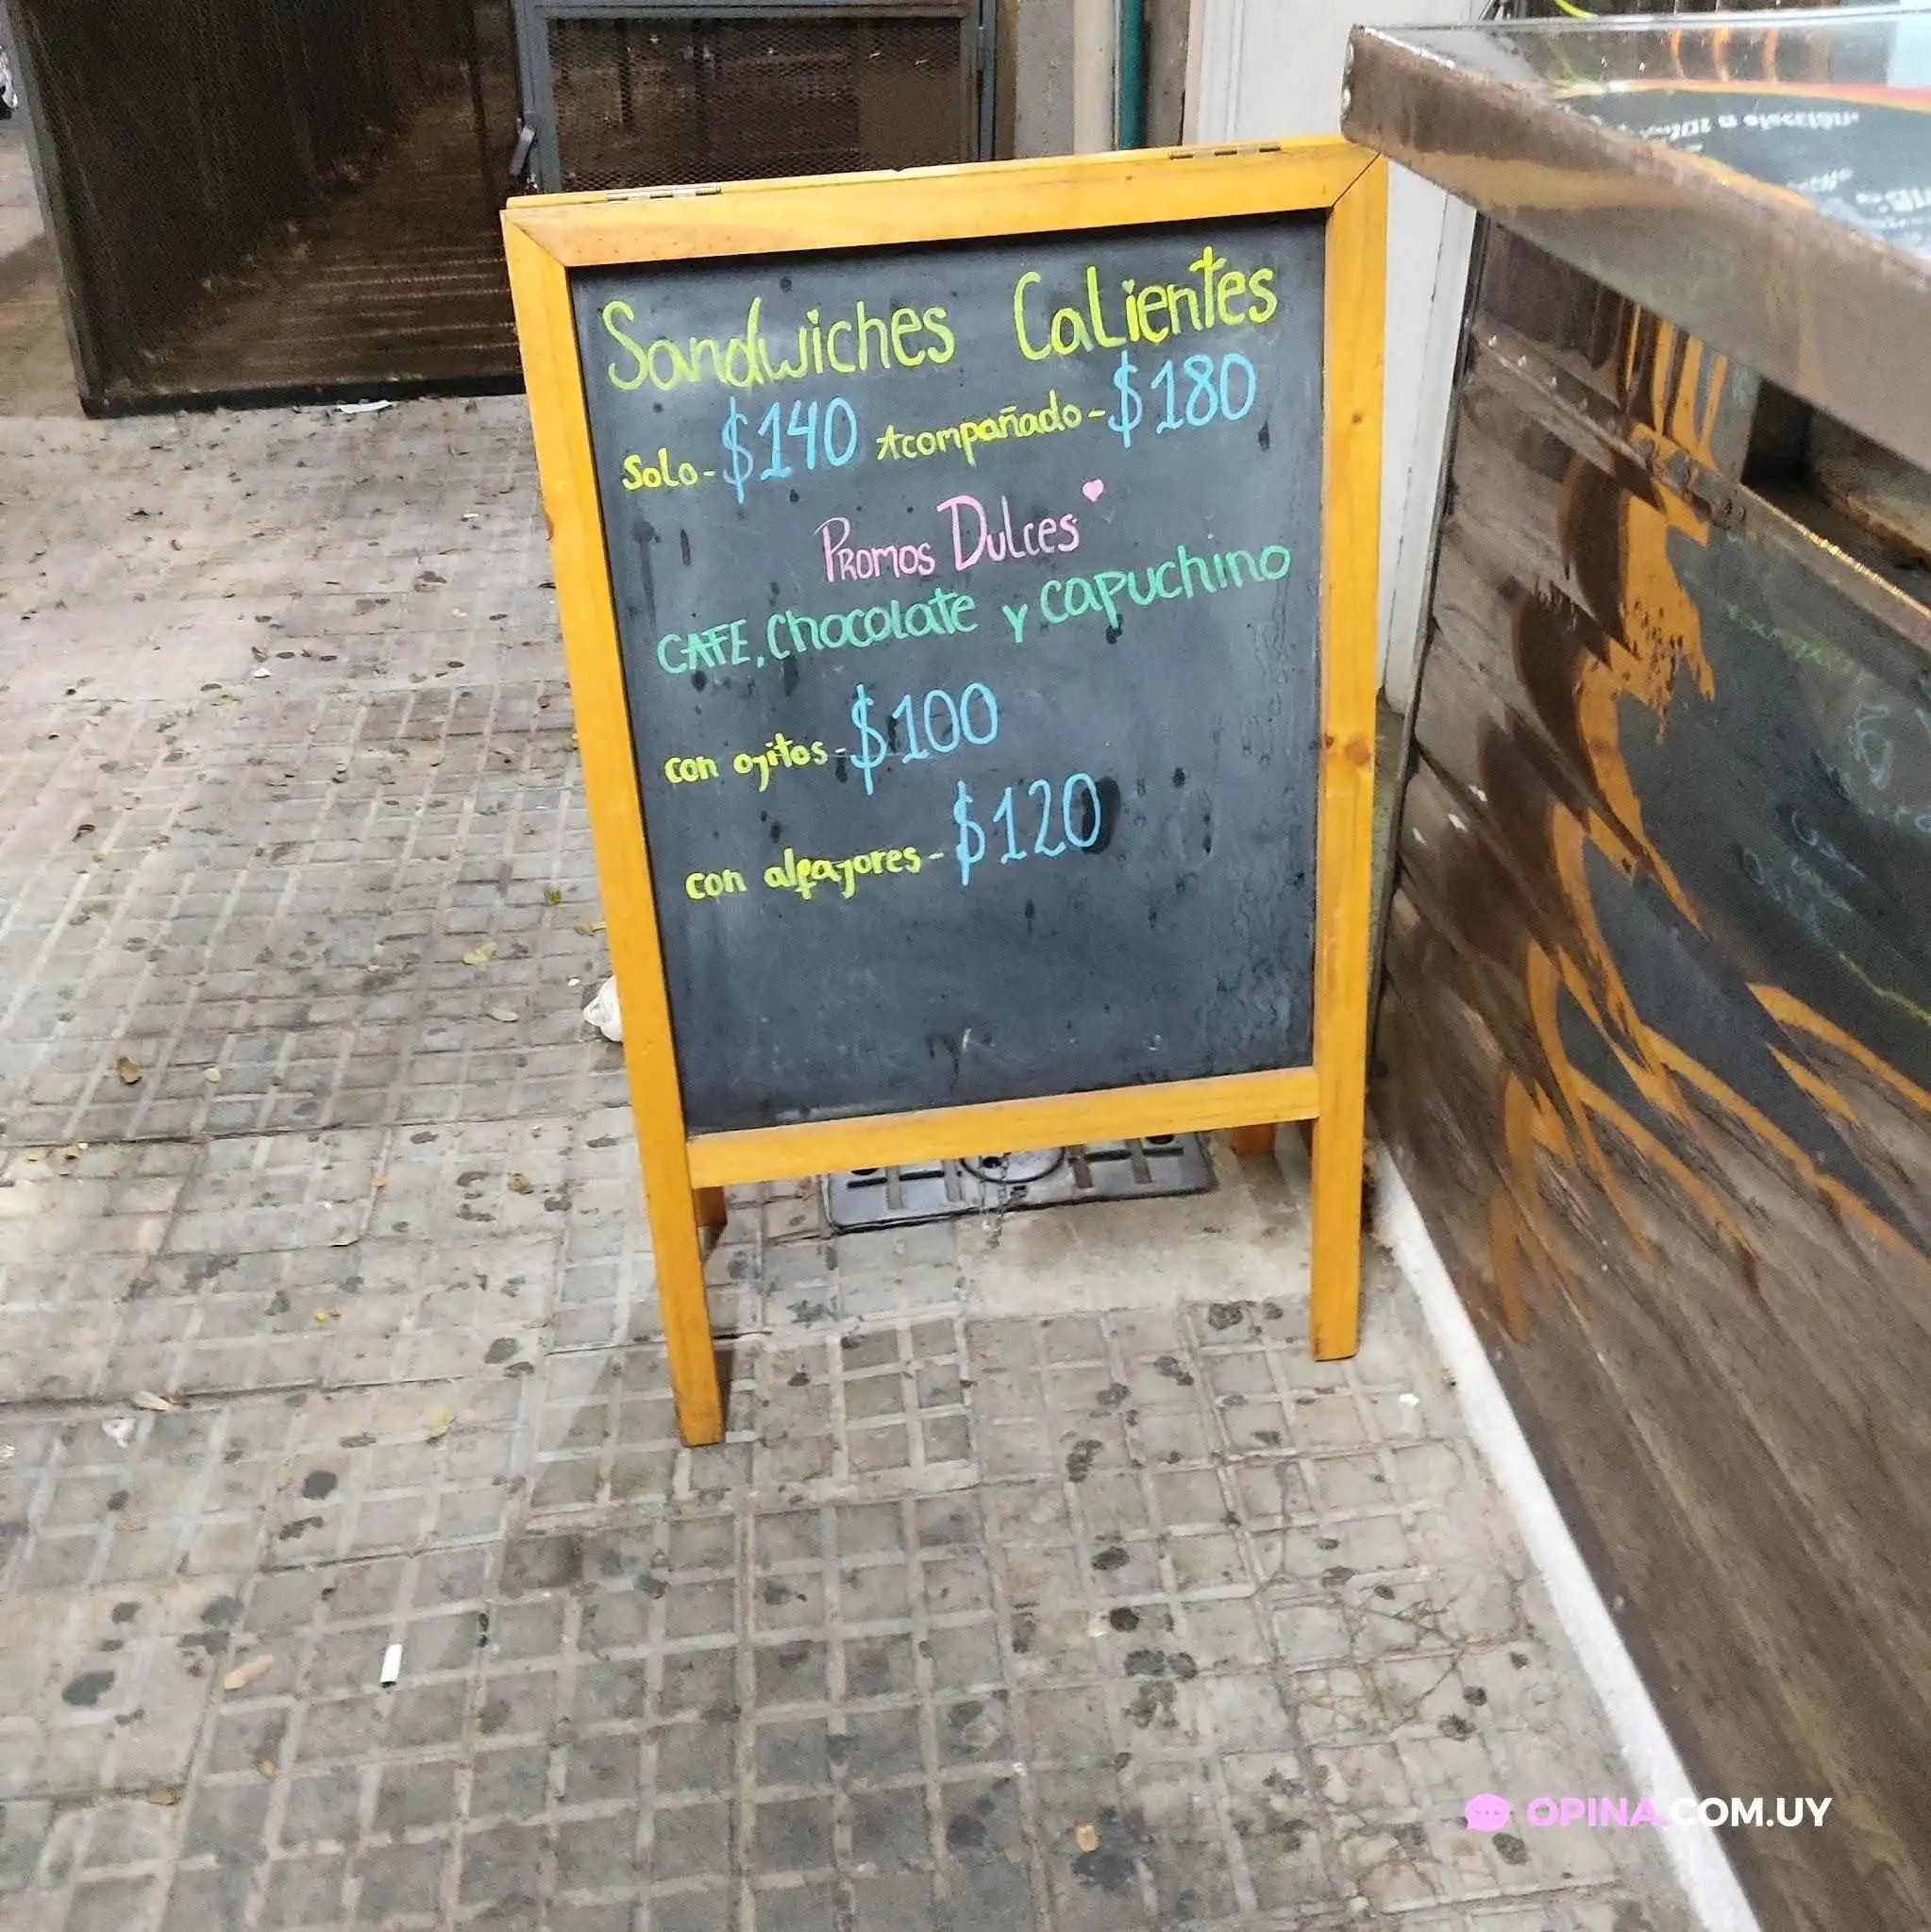 Sandwiches Calientes
Solo-$140 Acompañado-$180
Promos Dulces
CAFE, Chocolate y capuchino
con ojitos-$100
con alfajores-$120
a elección.
OPINA.COM.UY